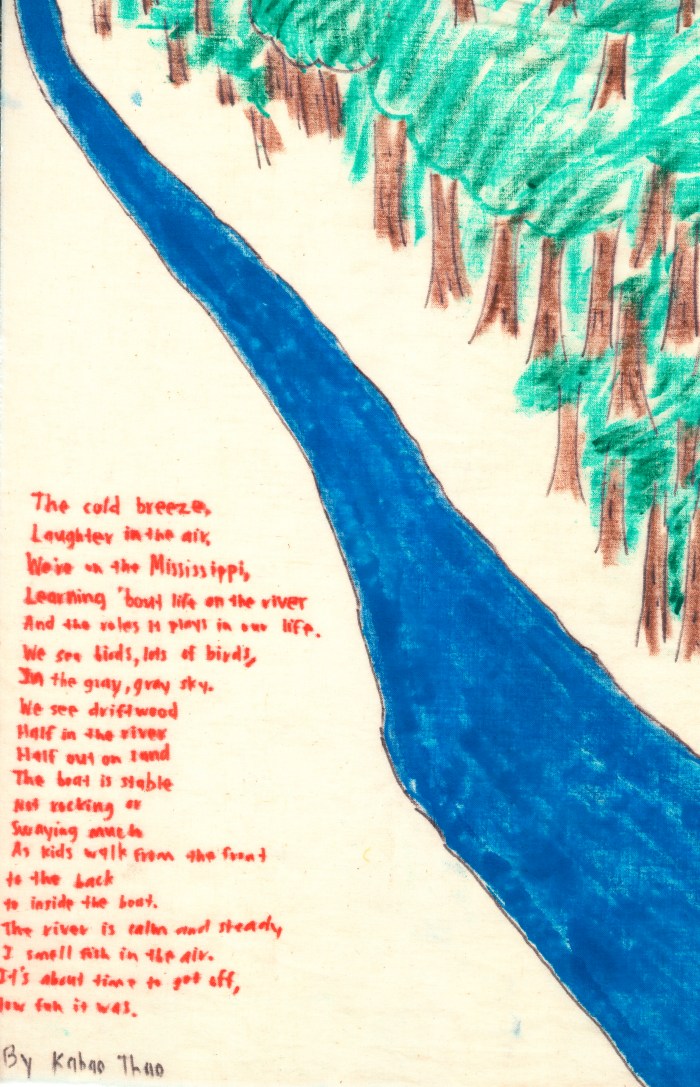 The cold breeze,
Laughter in the air.
We're on the Mississippi,
Learning 'bout life on the river
And the roles it plays in our life.
We see birds, lots of birds,
In the gray, gray sky.
We see driftwood
Half in the river
Half out on sand
The boat is stable
Not rocking or
Swaying much
As kids walk from the front
to the back
to inside the boat.
The river is calm and steady
I smell fish in the air.
It's about time to get off,
How fun it was.
By Kabao Thao